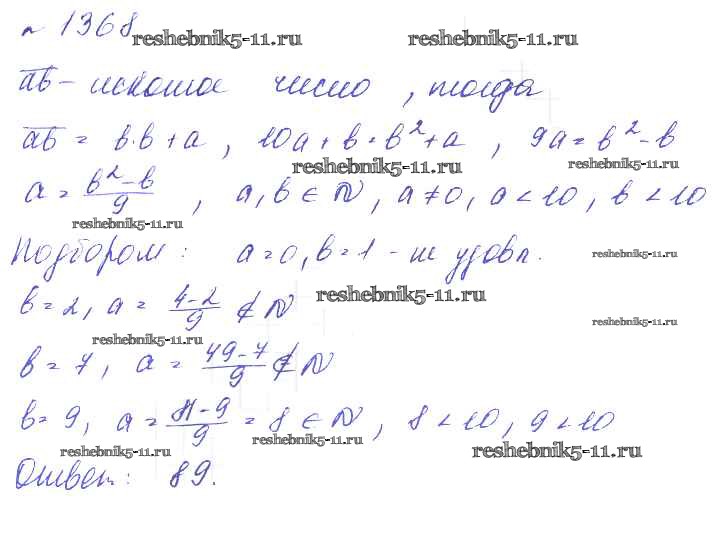 № 1368
reshebnik5-11.ru reshebnik5-11.ru
ab – искомое число, тогда
ab = b·b+a, 10a+b=b²+a, 9a=b²-b
reshebnik5-11.ru reshebnik5-11.ru
a = (b²-b)/9, a,b ∈ N, a≠0, a<10, b<10
reshebnik5-11.ru
Подбором: a=0, b=1 - не удовл.
reshebnik5-11.ru
b=2, a = (4-2)/9 ∉ N
reshebnik5-11.ru
reshebnik5-11.ru
reshebnik5-11.ru
b=7, a = (49-7)/9 ∉ N
b=9, a = (81-9)/9 = 8 ∈ N, 8<10, 9<10
reshebnik5-11.ru reshebnik5-11.ru reshebnik5-11.ru
Ответ: 89.